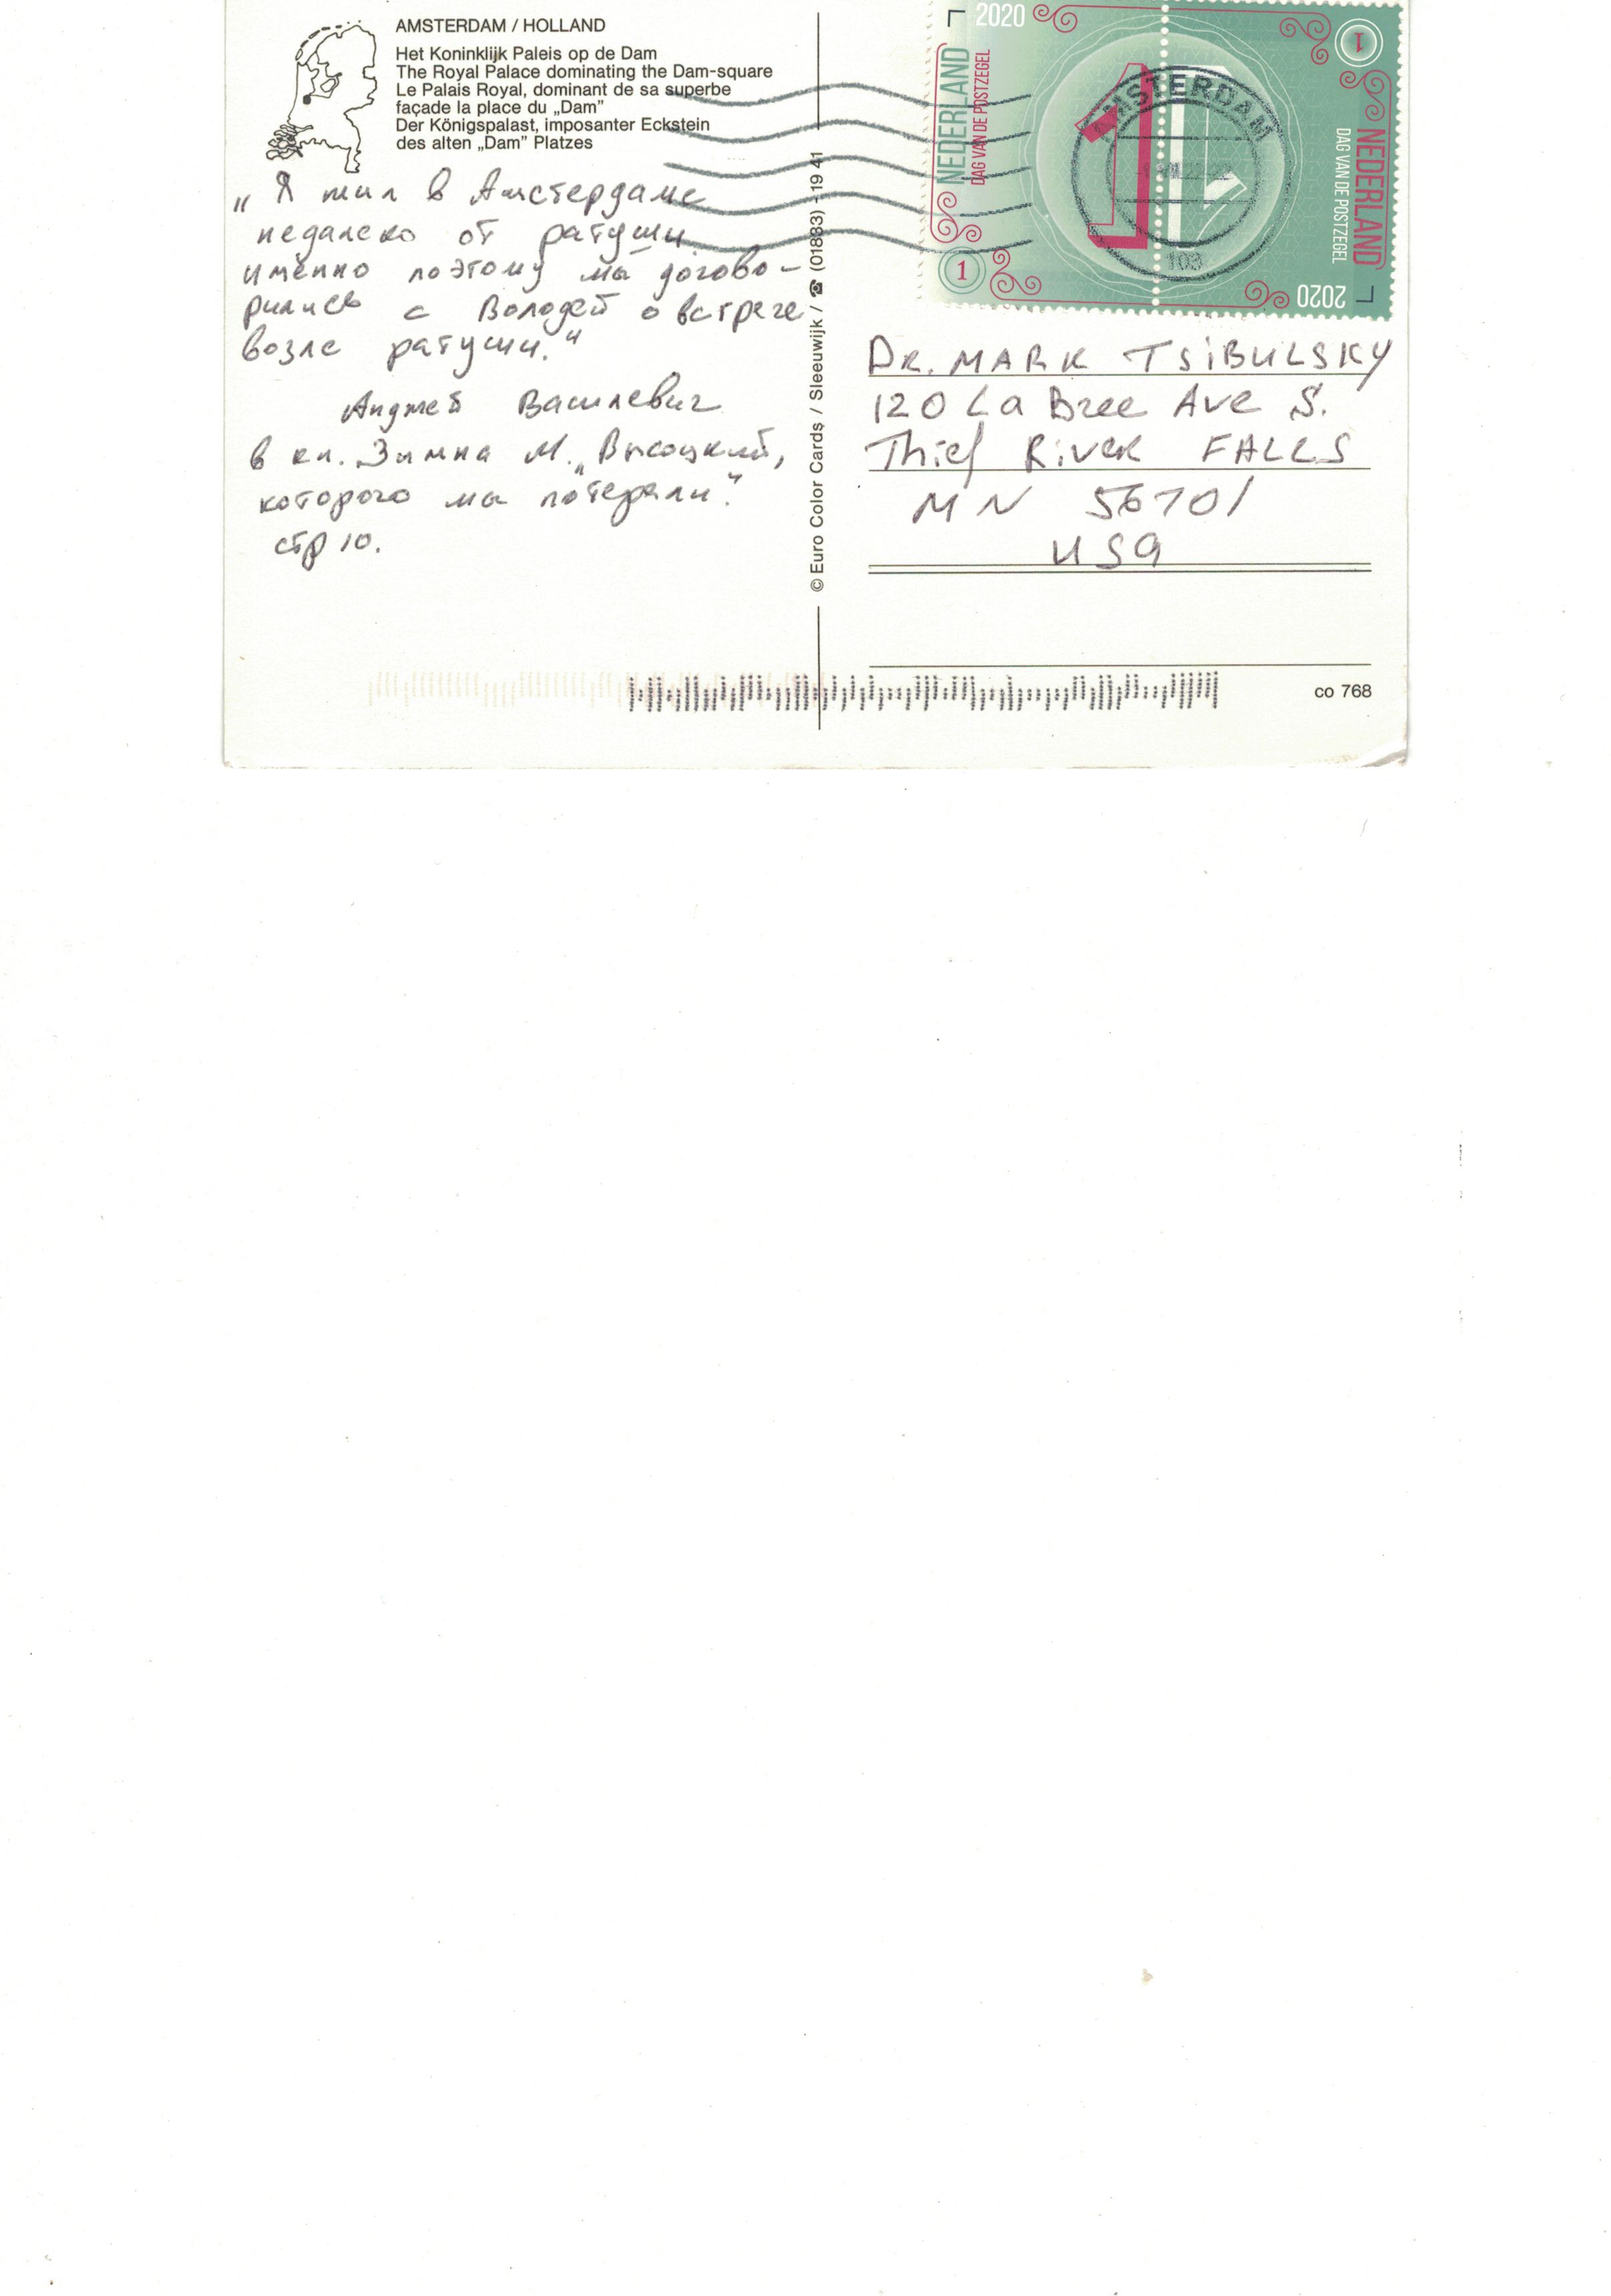 AMSTERDAM / HOLLAND
Het Koninklijk Paleis op de Dam
The Royal Palace dominating the Dam-square
Le Palais Royal, dominant de sa superbe
façade la place du „Dam”
Der Königspalast, imposanter Eckstein
des alten „Dam” Platzes
„Я жил в Амстердаме
недалеко от ратуши
именно поэтому мы догово-
рились с Володей о встрече
возле ратуши.“
Анджей Василевич
в кн. Зимна М. „Высоцкий,
которого мы потеряли“.
стр 10.
© Euro Color Cards / Sleeuwijk / ☎ (01833) - 19 41
2020
NEDERLAND
DAG VAN DE POSTZEGEL
1
1
NEDERLAND
DAG VAN DE POSTZEGEL
2020
1
1
AMSTERDAM
103
DR. MARK TSIBULSKY
120 La Bree Ave S.
Thief RIVER FALLS
MN 56701
USA
co 768